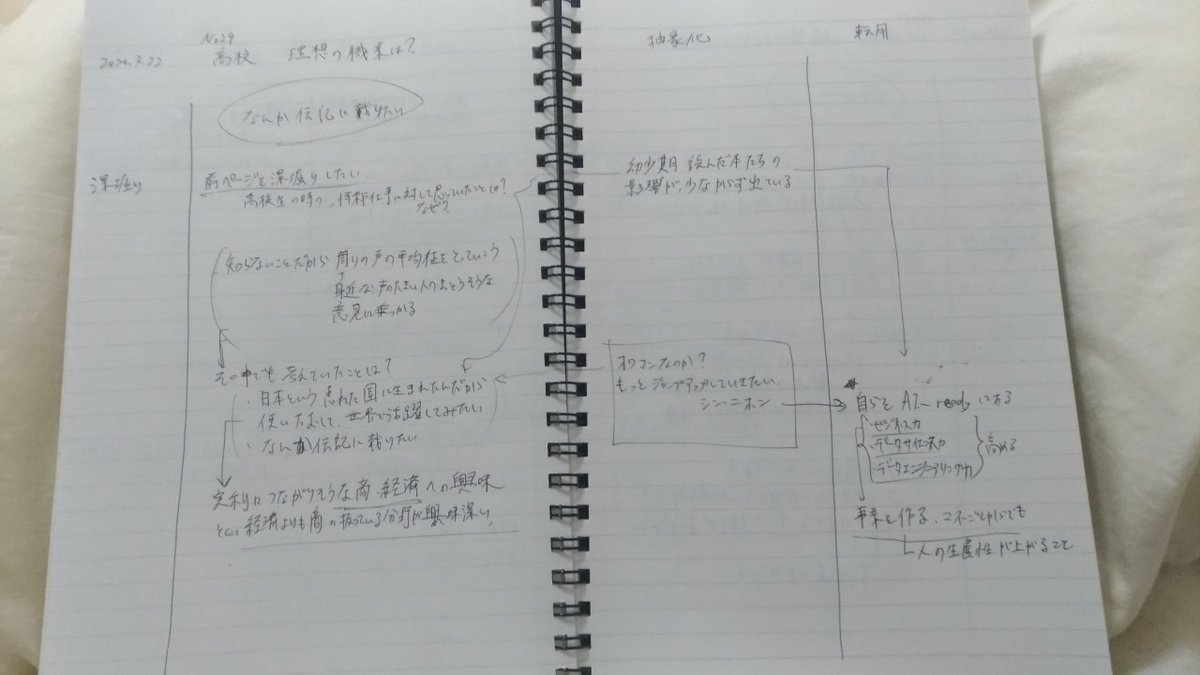 No29
2020.3.22
高校 理想の職業は?
なんか伝記に載りたい
深堀り
前ページを深堀りしたい
高校生の時の、将来仕事に対して思っていたことは?
なぜ?
知らないことだから 周りの声の平均値をとっていこう
身近な声の大きい人の
意見に乗っかる
その中でも考えていたことは?
・日本という恵まれた国に生まれたんだから
使いたおして、世界で活躍してみたい
・なんか伝記に載りたい
実利につながりそうな商・経済への興味
とくに経済よりも商の扱っている分野が興味深い
抽象化
幼少期 読んだ本たちの
影響が、少なからず出ている
オワコンなのか?
もっとジャンプアップしていきたい
シン・ニホン
転用
自らを AI-readyにする
ビジネス力
データサイエンス力
データエンジニアリング力
高める
未来を作る、
人の生産性が上がること